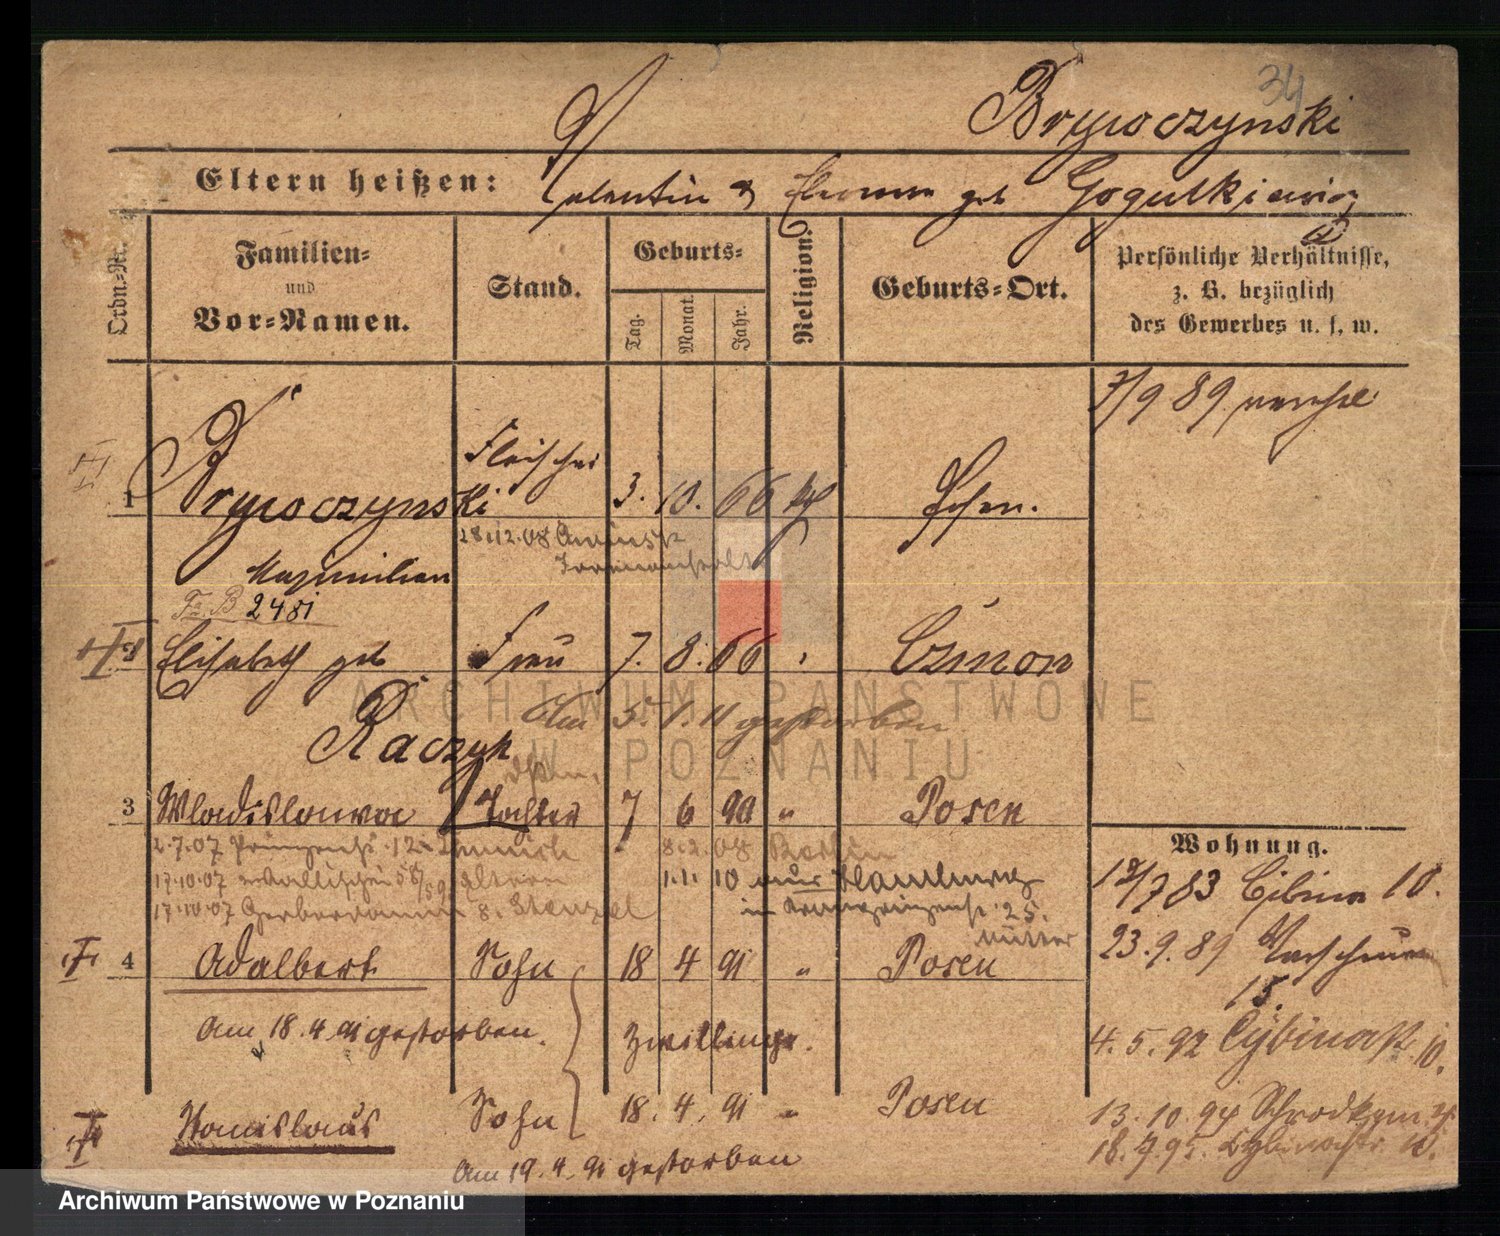 34
Brywczynski
Eltern heißen: Valentin & geb Gogulkiewicz
Ordn.-Nr.
Familien-
und
Vor-Namen.
Stand.
Geburts-
Tag.
Monat.
Jahr.
Religion.
Geburts-Ort.
Persönliche Verhältnisse,
z. B. bezüglich
des Gewerbes u. s. w.
7/9 89
Fleischer
1 Brywoczynski 3. 10. 66 Posen.
28.12.08
Irrenanstalt
Maximilian
2481
2 Elisabeth geb Frau 7. 8. 66 Czmon
Am 5. 1. 11 gestorben
Raczyk
3 Wladislawa Tochter 7 6 90 " Posen
Wohnung.
2.7.07 8.2.08 Berlin
17.10.07 Wallischei Eltern 1.1. 10 aus Hamburg
17.10.07 Gerberdamm 8. Stenzel in Kronprinzenstr. 25.
Mutter
12/7 83 Cibina 10.
23.9.89
15.
4 Adalbert Sohn 18 4 91 " Posen
Am 18.4.91 gestorben. Zwillinge.
4.5.92 Cybinastr. 10.
Stanislaus Sohn 18. 4. 91 " Posen
13.10.94
18.7.95. Cybinastr. 10.
Am 19.4.91 gestorben
ARCHIWUM PAŃSTWOWE
W POZNANIU
Archiwum Państwowe w Poznaniu